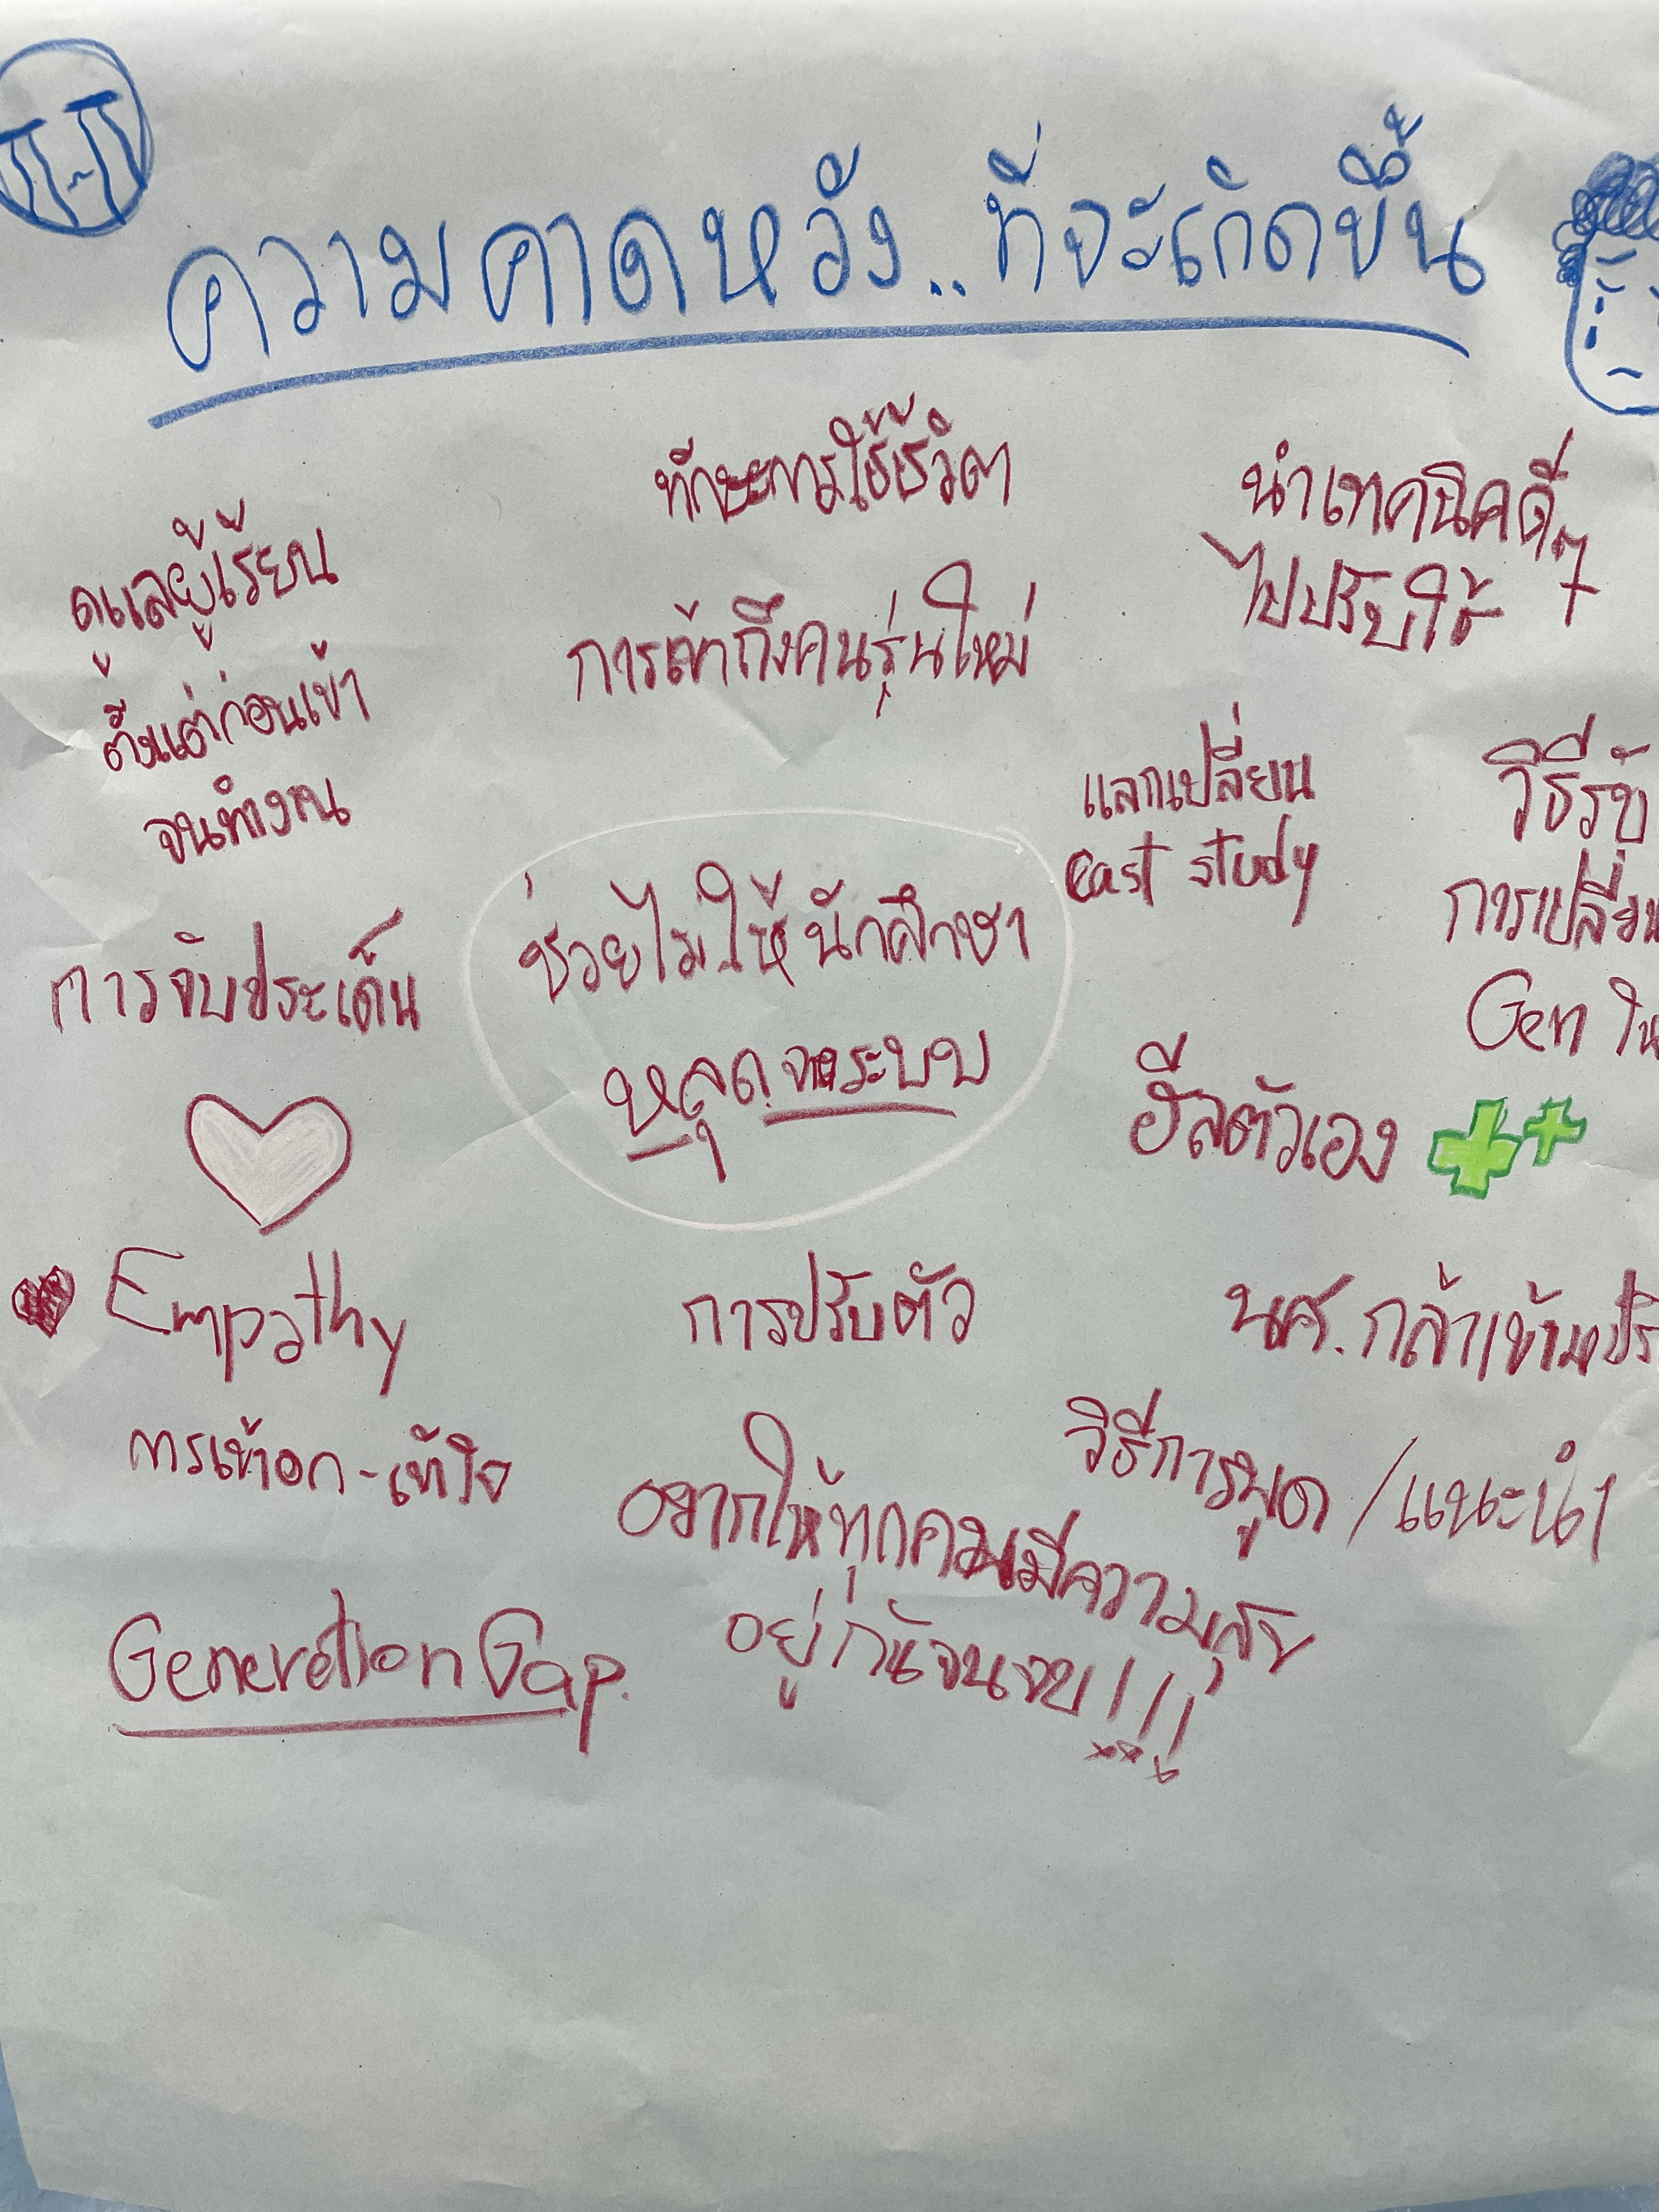 ความคาดหวัง..ที่จะเกิดขึ้น
ทักษะการใช้ชีวิต
นำเทคนิคดีๆ
ไปปรับใช้
ดูแลผู้เรียน
ตั้งแต่ก่อนเข้า
จนทำงาน
การเข้าถึงคนรุ่นใหม่
แลกเปลี่ยน
case study
วิธีรับ
การเปลี่ยน
Gen ใน
ช่วยไม่ให้นักศึกษา
หลุดจากระบบ
การจับประเด็น
ฮีลตัวเอง
Empathy
การเข้าอก-เข้าใจ
การปรับตัว
นศ.กล้าเข้ามาปร
วิธีการพูด/แนะนำ
อยากให้ทุกคนมีความสุข
อยู่กันจนจบ!!!
Generation Gap.